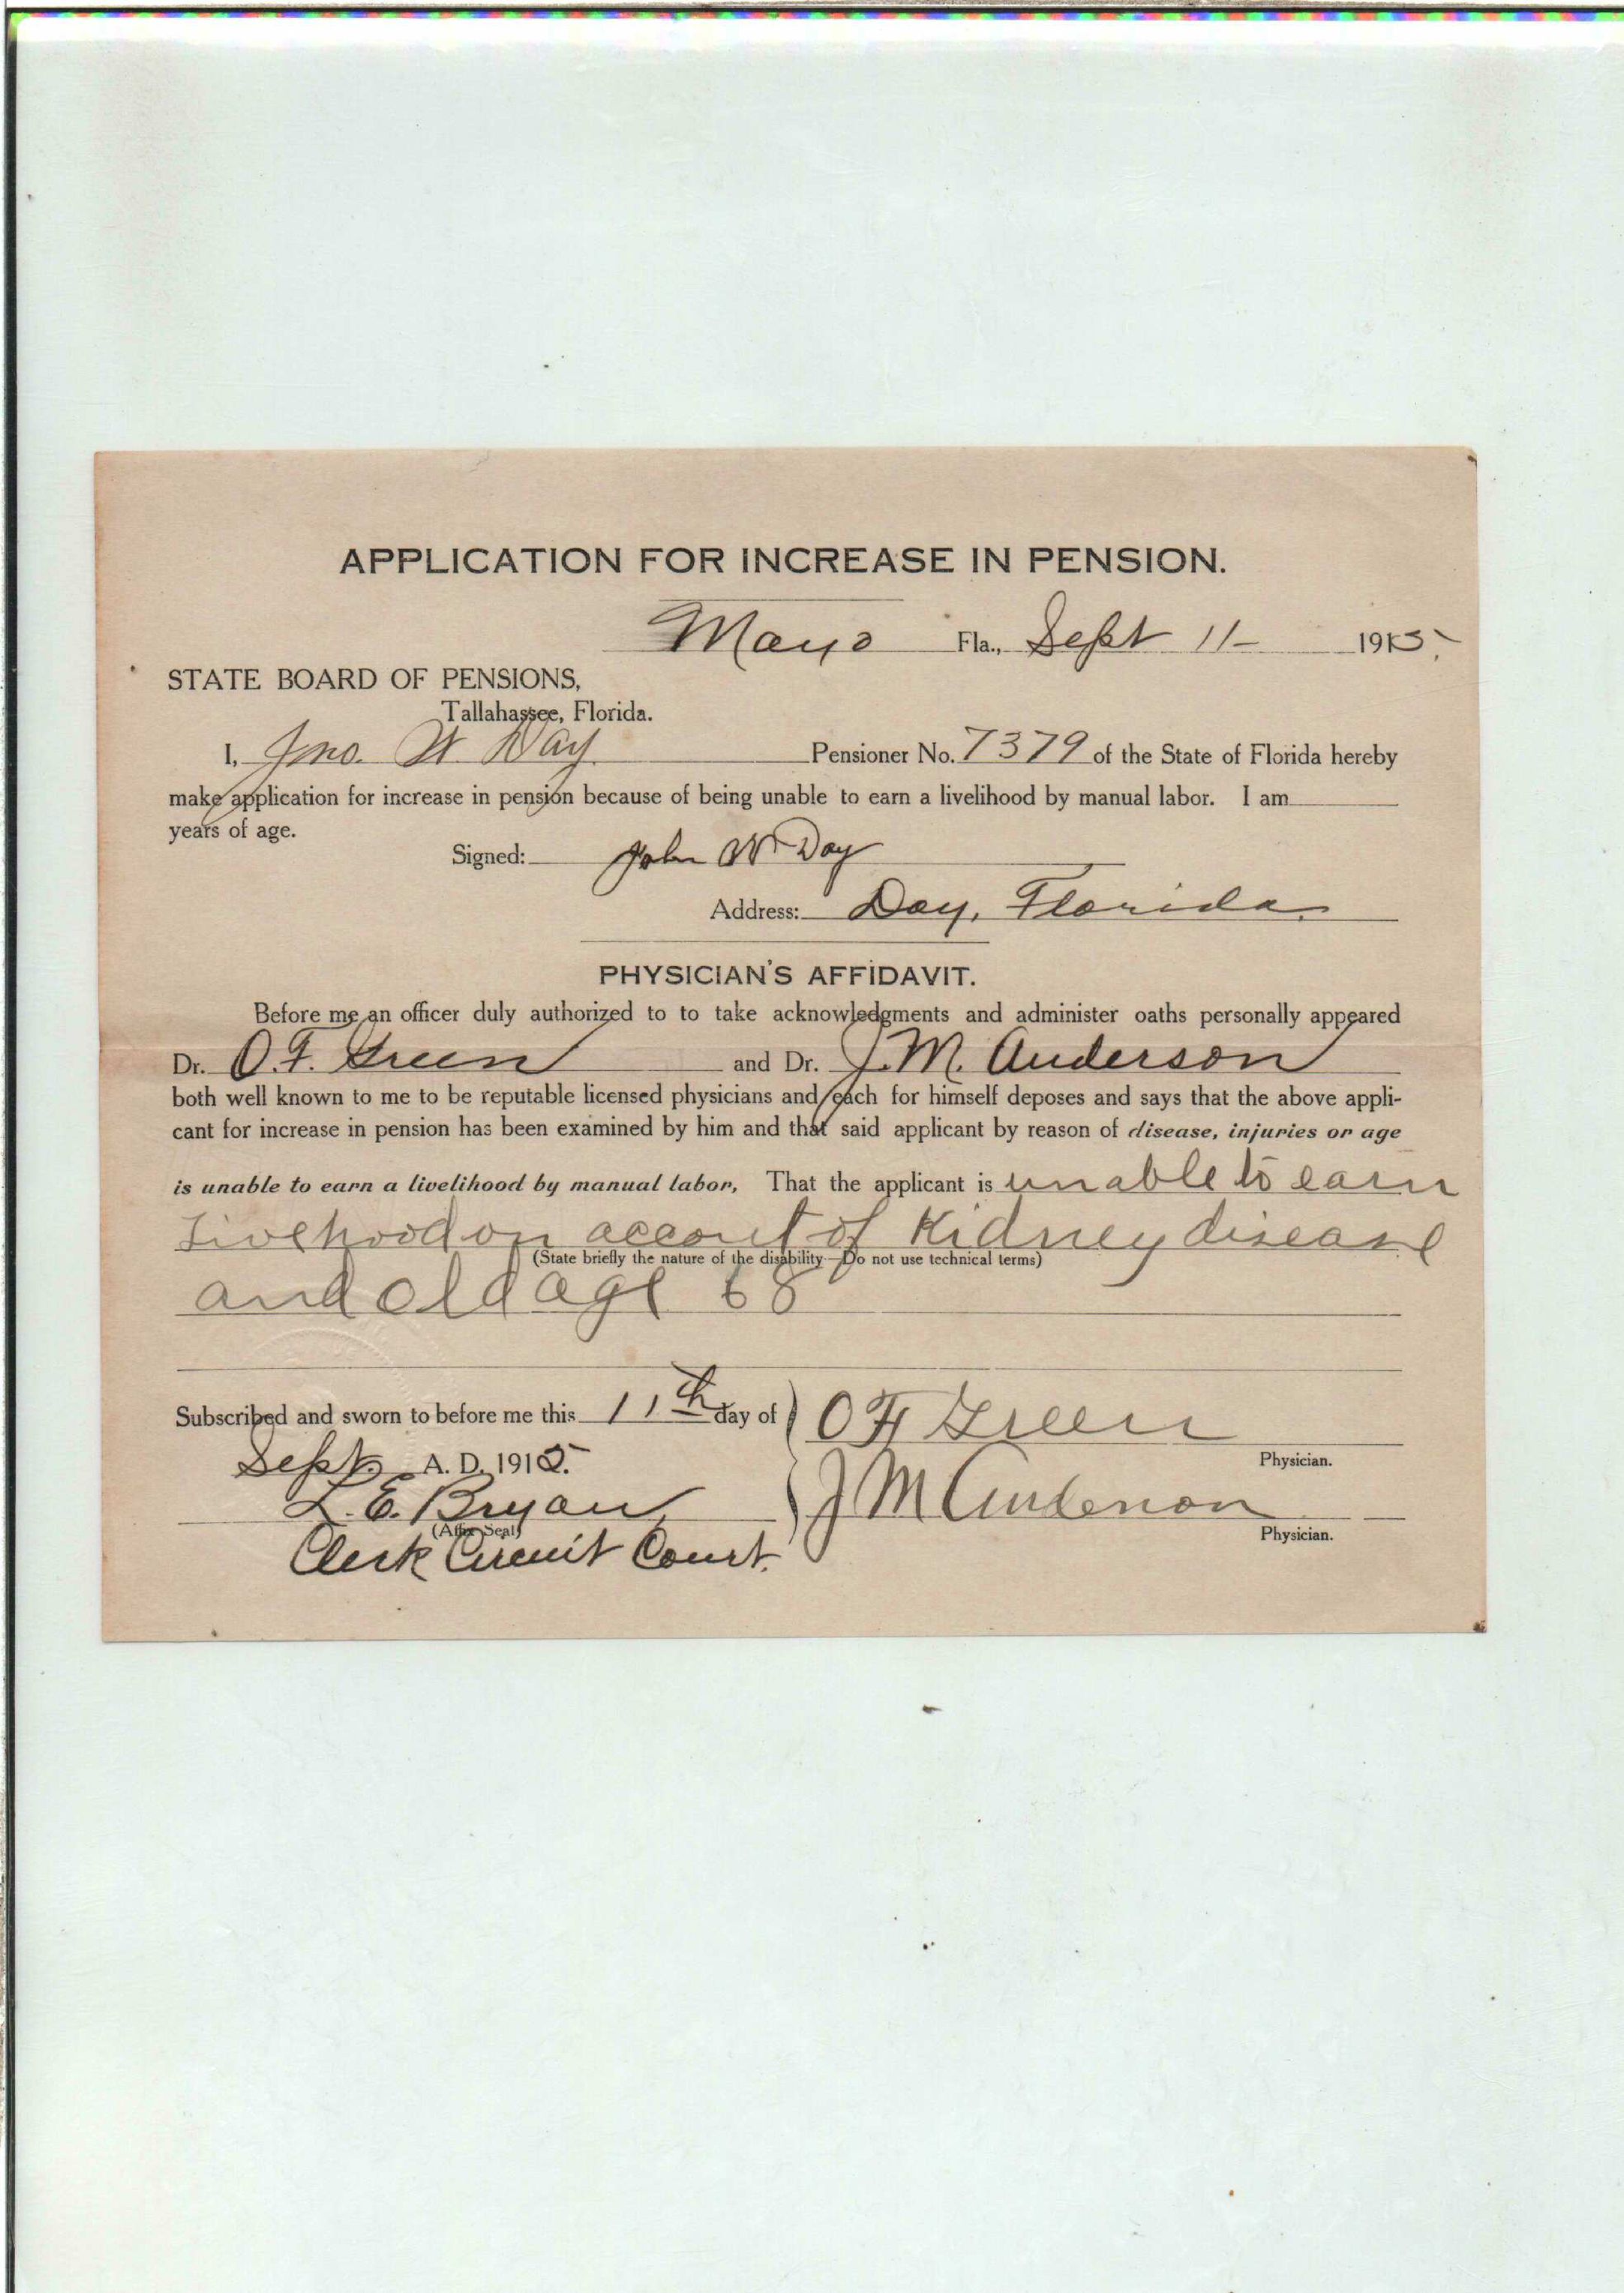 APPLICATION FOR INCREASE IN PENSION.
Mayo Fla., Sept 11- 1915.
STATE BOARD OF PENSIONS,
Tallahassee, Florida.
I, Jno. W. Day Pensioner No. 7379 of the State of Florida hereby
make application for increase in pension because of being unable to earn a livelihood by manual labor. I am
years of age.
Signed: John W Day
Address: Day, Florida.
PHYSICIAN'S AFFIDAVIT.
Before me an officer duly authorized to to take acknowledgments and administer oaths personally appeared
Dr. O. F. Green and Dr. J. M. Anderson
both well known to me to be reputable licensed physicians and each for himself deposes and says that the above appli-
cant for increase in pension has been examined by him and that said applicant by reason of disease, injuries or age
is unable to earn a livelihood by manual labor, That the applicant is unable to earn
Livehood on account of Kidney disease
(State briefly the nature of the disability—Do not use technical terms)
and old age 68
Subscribed and sworn to before me this 11th day of
Sept. A. D. 1915.
L. E. Bryan
(Affix Seal)
Clerk Circuit Court.
O F Green
Physician.
J M Anderson
Physician.